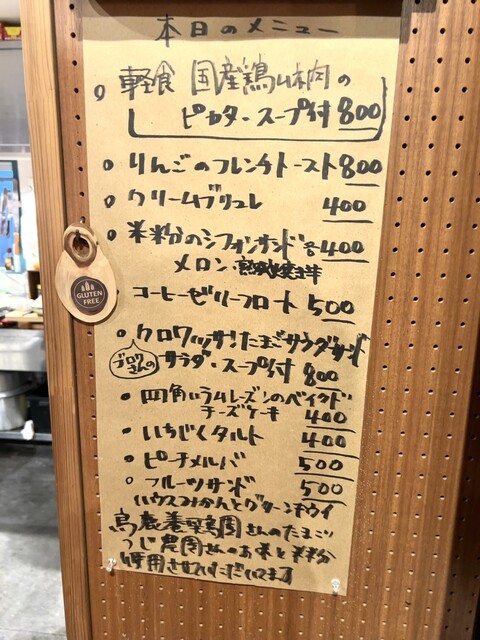 本日のメニュー
軽食 国産鶏ムネ肉の
ピカタ・スープ付 800
りんごのフレンチトースト 800
クリームブリュレ 400
米粉のシフォンサンド 各400
メロン・熟成焼き芋
コーヒーゼリーフロート 500
クロワッサンたまごサラダサンド
ブロワさんの
サラダ・スープ付 800
四角いラムレーズンのベイクド
チーズケーキ 400
いちじくタルト 400
ピーチメルバ 500
フルーツサンド 500
ハウスみかんとグリーンキウイ
養鶏園さんのたまご
つじ農園さんのお米と米粉
使用させていただいてます
GLUTEN
FREE